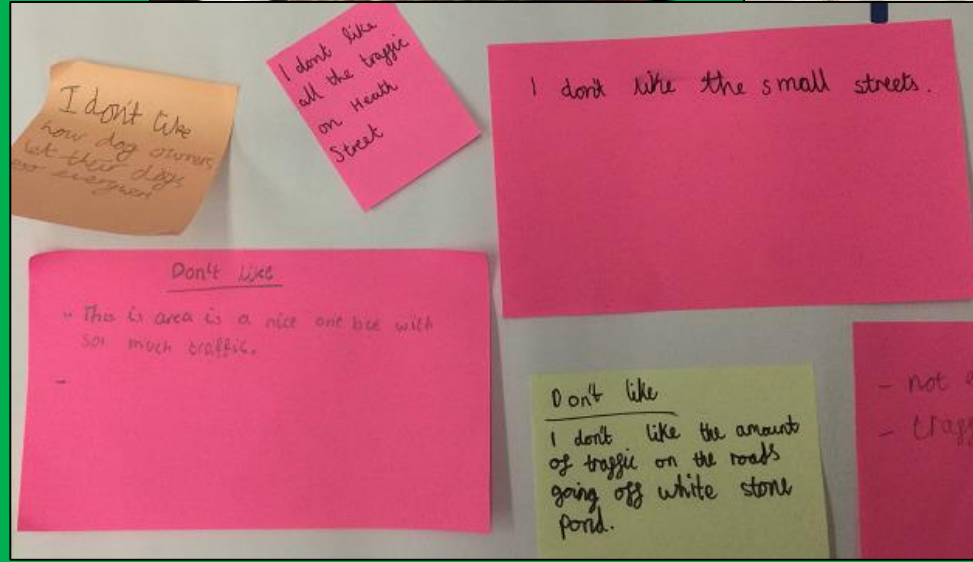 I don't like
how dog owners
let their dogs
I dont like
all the traffic
on Heath
Street
I don't like the small streets.
Don't like
- This is area is a nice one but with
soo much traffic.
-
Don't like
I don't like the amount
of traffic on the roads
going off white stone
pond.
- not
-